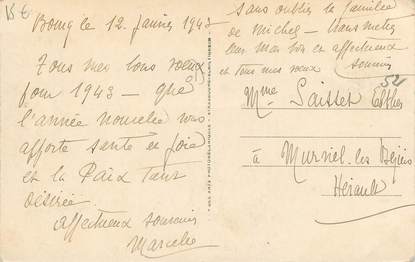 Bourg le 12 Janvier 1943
Tous mes bons voeux
pour 1943 - que
l'année nouvelle vous
apporte santé en joie
et la Paix tant
désirée.
Affectueux souvenir
Marcelle
sans oublier la famille
de Michel - transmettez
leur mon bon et affectueux
souvenir
et tous mes voeux
Mme Saisset Esther
à Murviel-les-Béziers
Hérault